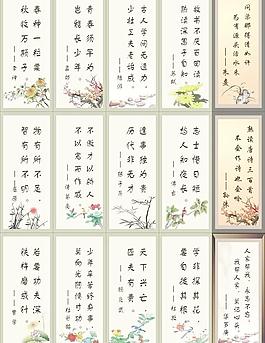 春种一粒粟
秋收万颗子
——李绅
青春须早为
岂能长少年
——孟郊
古人学问无遗力
少壮工夫老始成
——陆游
故书不厌百回读
熟读深思子自知
——苏轼
问渠那得清如许
为有源头活水来
——朱熹
物有所不足
智有所不明
——屈原
不傲才以骄人
不以宠而作威
——诸葛亮
遗事独为贵
历代非无才
——陈子昂
志士惜日短
愁人知夜长
——傅玄
熟读唐诗三百首
不会作诗也会吟
——孙洙
若要功夫深
铁杵磨成针
少年辛苦终身事
莫向光阴惰寸功
——杜荀鹤
天下兴亡
匹夫有责
——顾炎武
学非探其花
要自拨其根
——杜牧
人家帮我，永志不忘；
我帮人家，莫记心头。
——华罗庚